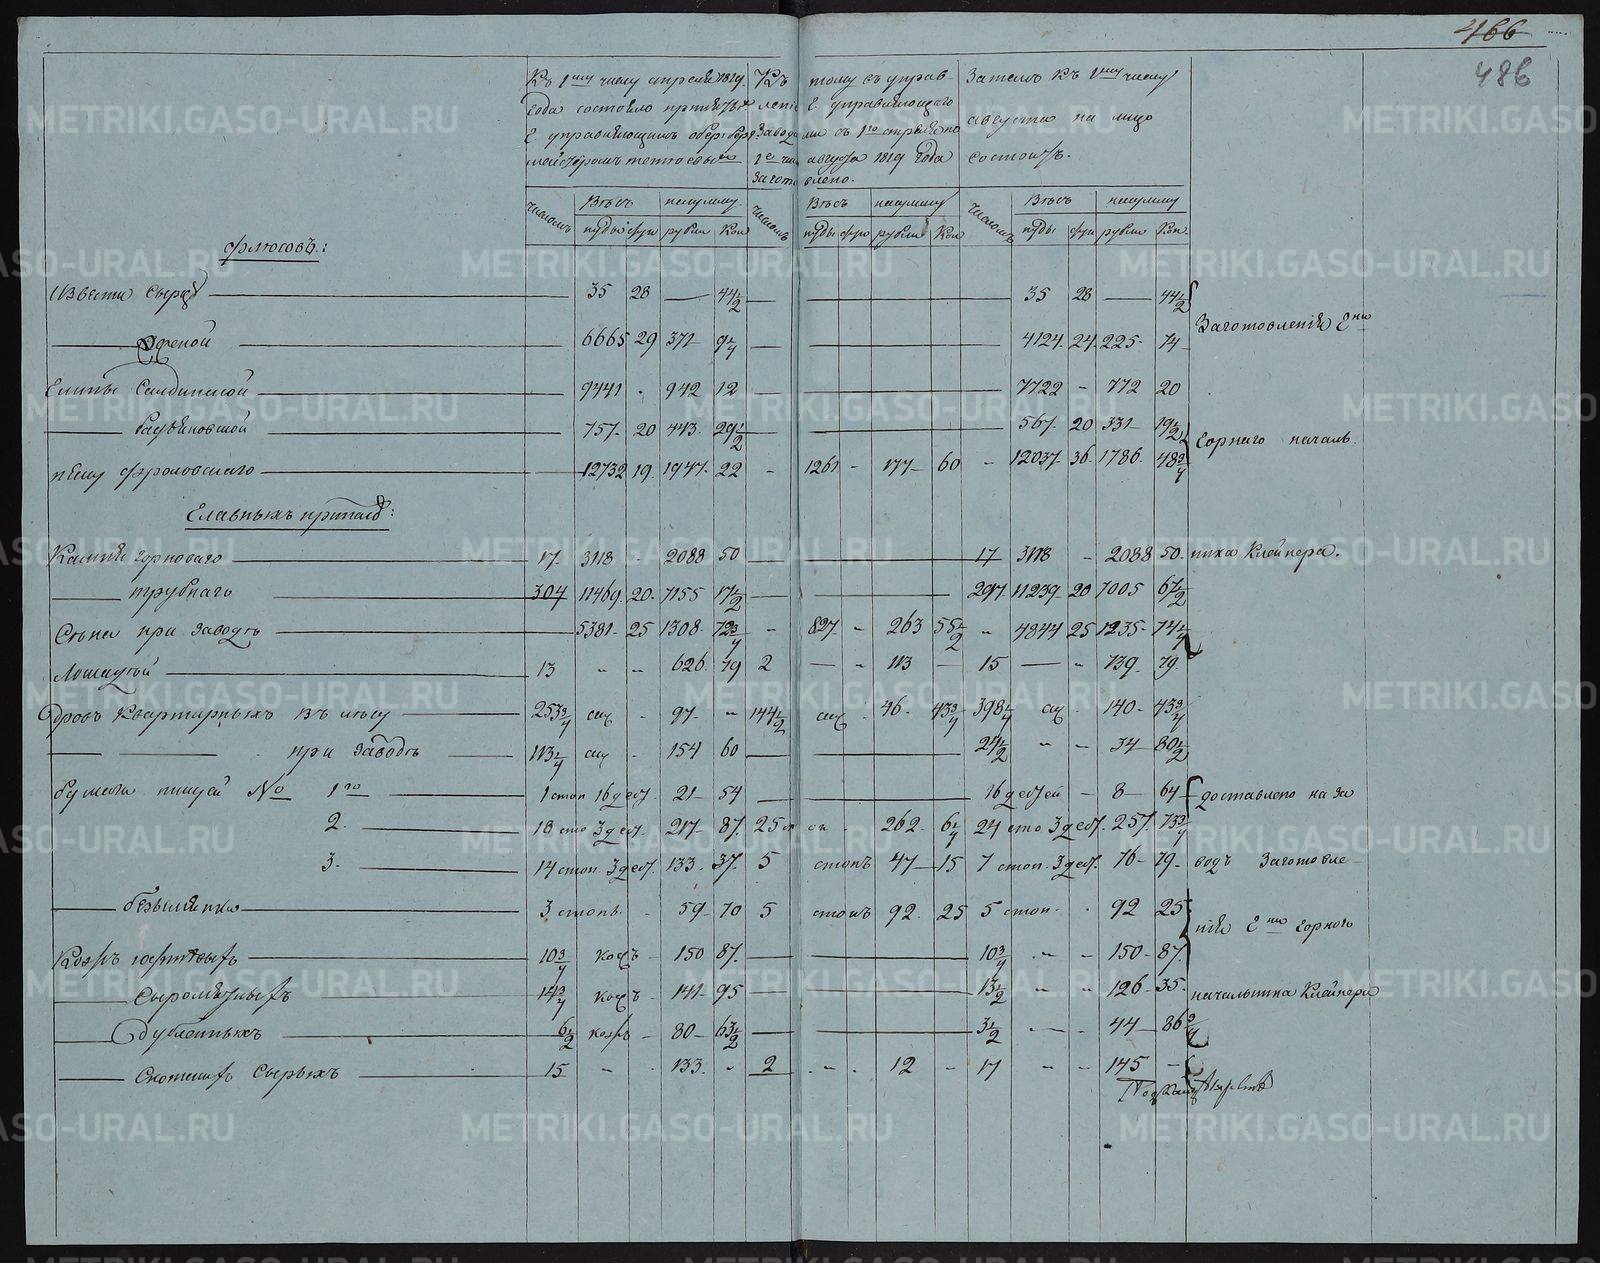 466
486
Къ 1му числу апреля 1819
года состояло при
Г управляющимъ обер берг
мейстеромъ
Къ
тому съ управ-
ле
Г управляющаго
Завода
августа 1819 года
Загото
влено.
Затемъ къ 1му числу
августа на лицо
состоитъ.
числомъ
Весъ
на сумму
пуды фун рубли коп
числомъ
Весъ
на сумму
пуды фун рубли коп
числомъ
Весъ
на сумму
пуды фун рубли коп
флюсовъ:
Извести сырой 35 28 — 44 1/2 35 28 — 44 1/2
6665 29 371 9 1/4 4124 24 225 74
Заготовления Гна
Глины Салдинской 9441 - 942 12 7722 - 772 20
757 20 443 29 1/2 567 20 331 19 1/2
Горнаго началь
Песку Фроловскаго 12732 19 1947 22 - 1261 - 177 60 - 12037 36 1786 48 3/4
Главныхъ припасов:
Камня горноваго 17 3118 - 2088 50 17 3118 - 2088 50
ника Клейнера.
трубнаго 304 11469 20 7155 17 1/2 297 11239 20 7005 67 1/2
Сена при заводе 5381 25 1308 72 3/4 - 827 - 263 55 1/2 - 4844 25 1235 74 1/4
Лошадей 13 - - 626 79 2 — - 113 - 15 — - 739 79
Дровъ квартирныхъ въ лесу 253 3/4 саж - 97 - 144 1/2 саж - 46 43 3/4 398 1/4 саж - 140 43 3/4
при заводе 113 1/4 саж - 154 60 24 1/2 - - 34 80 1/2
бумаги писчей No 1го 1 стоп 16 дест. 21 54 16 дестей - 8 64
доставлено на за
2. 18 сто 3 дест. 217 87 25 262 6 1/4 24 сто 3 дест. 257 73 3/4
3. 14 стоп. 3 дест. 133 37 5 стопъ 47 15 7 стоп. 3 дест. 76 79
водъ заготовле-
3 стопы - 59 70 5 стопъ 92 25 5 стоп. - 92 25
ния Гна Горного
Кожъ юфтевыхъ 10 3/4 кожъ - 150 87 10 3/4 - - 150 87
Сыромятныхъ 14 3/4 кожъ - 141 95 13 1/2 - - 126 35
начальника Клейнера
Дубленныхъ 6 1/2 кожъ - 80 63 1/2 3 1/2 - - 44 86 3/4
сырыхъ 15 - - 133 - 2 - - 12 - 17 - - 145 -
METRIKI.GASO-URAL.RU